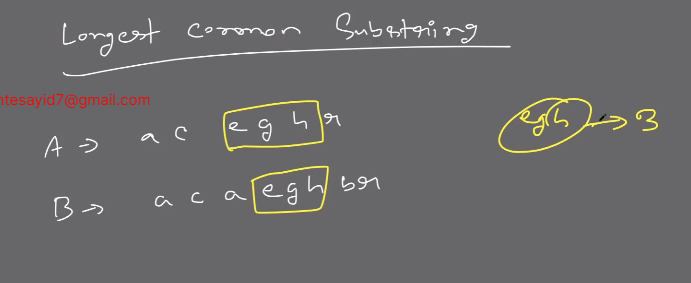 Longest common Substring
ntesayid7@gmail.com
A → a c e g h r
egh → 3
B → a c a e g h b r